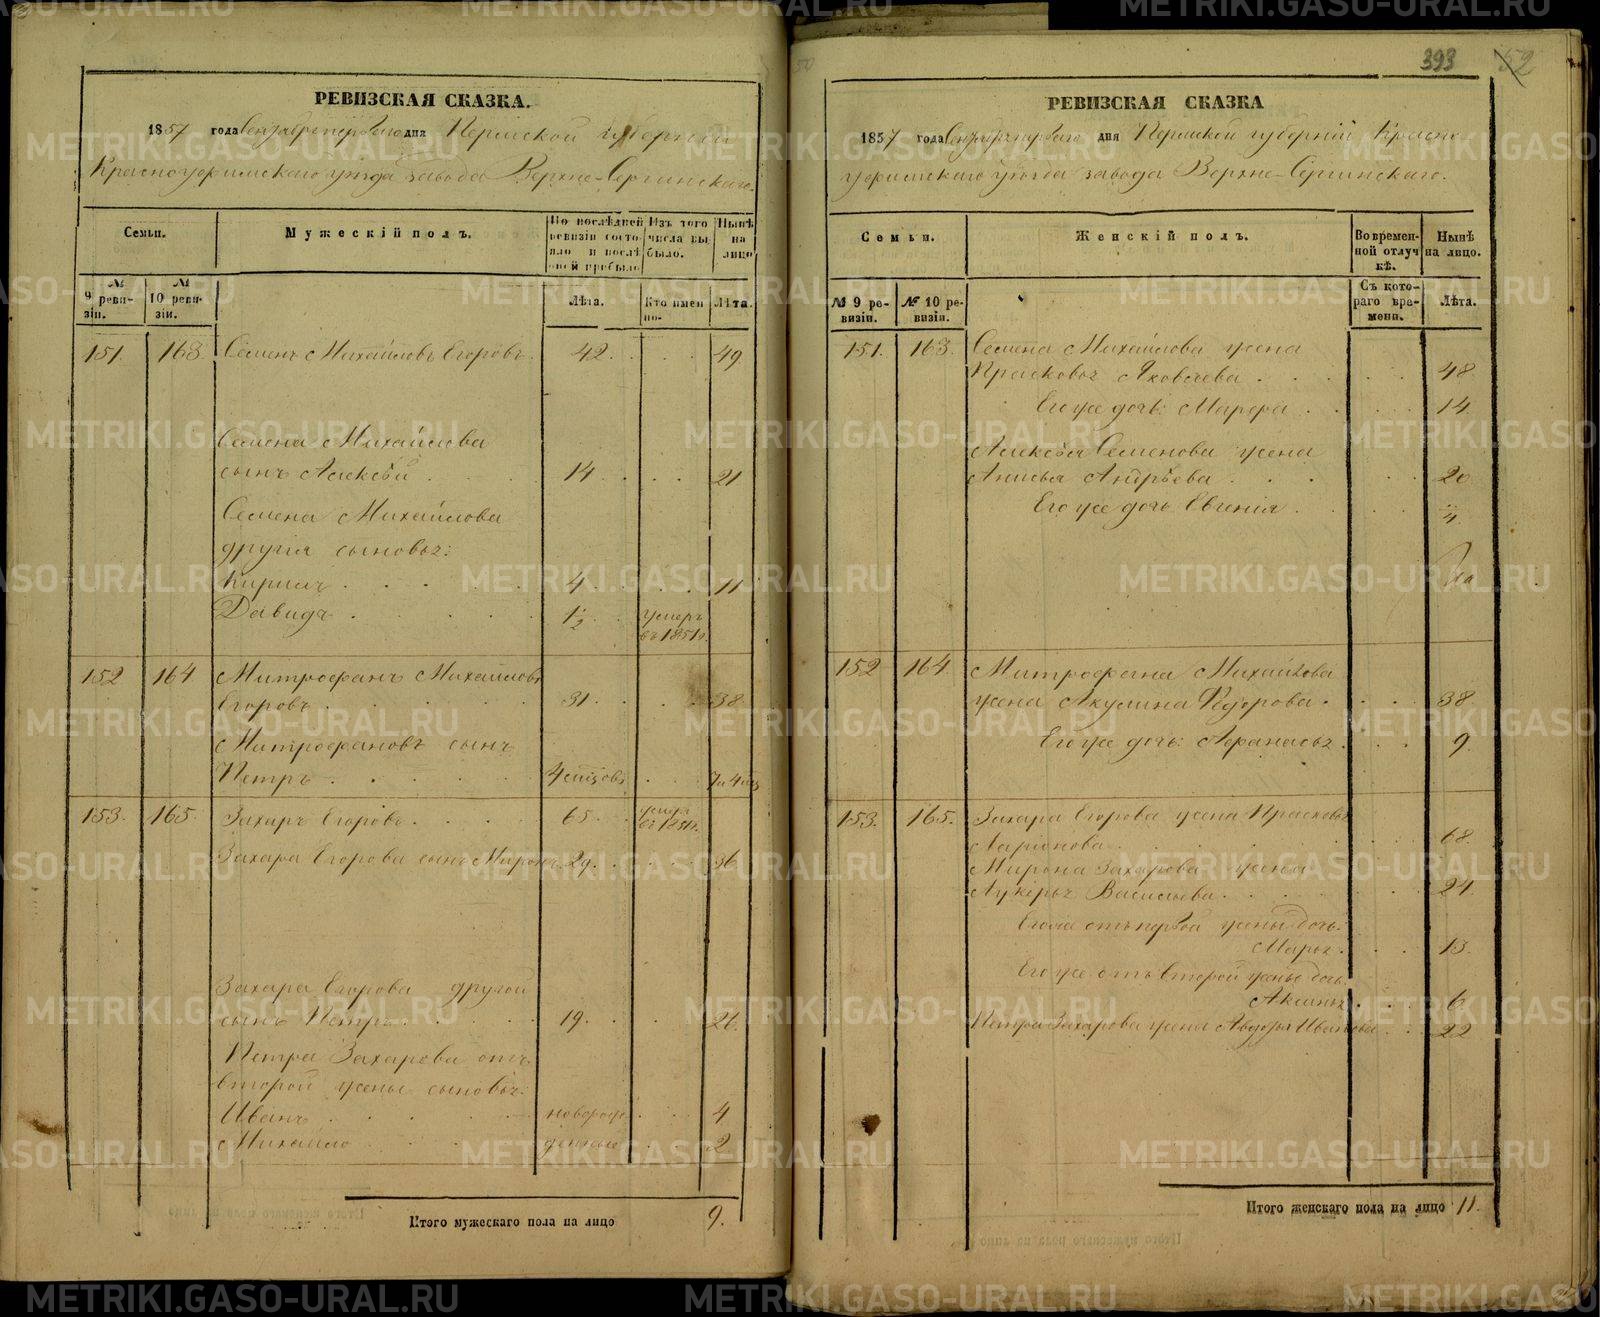 РЕВИЗСКАЯ СКАЗКА.
1857 года Сентября перваго дня Пермской губерніи
Красноуфимскаго уѣзда завода Верхне-Сергинскаго.
Семьи. Мужескій полъ. По послѣдней ревизіи состояло и послѣ оной прибыло Изъ того числа выбыло. Нынѣ на лицо
№ 9 ревизіи. № 10 ревизіи. Лѣта. Кто имен но. Лѣта.
151. 163. Семенъ Михайловъ Егоровъ. 42. 49
Семена Михайлова
сынъ Алексѣй 14 21
Семена Михайлова
другія сыновья:
Кирилъ 4 11
Давидъ 1/2 умеръ въ 1851 г.
152 164 Митрофанъ Михайловъ
Егоровъ 31 38
Митрофановъ сынъ
Петръ 4 мѣсяцовъ 7 и 4 мѣс
153. 165. Захаръ Егоровъ 65. умеръ въ 1851 г.
Захара Егорова сынъ Миронъ 29. 36
Захара Егорова другой
сынъ Петръ 19. 26
Петра Захарова отъ
второй жены сыновья:
Иванъ новорож 4
Михайло денные 2
Итого мужескаго пола на лицо 9.
393 52
РЕВИЗСКАЯ СКАЗКА
1857 года Сентября перваго дня Пермской губерніи Красно
уфимскаго уѣзда завода Верхне-Сергинскаго.
Семьи. Женскій полъ. Во временной отлучкѣ. Нынѣ на лицо.
№ 9 ревизіи. № 10 ревизіи. Съ котораго времени. Лѣта.
151. 163. Семена Михайлова жена
Прасковья Яковлева 48
Его же дочь: Марфа 14
Алексѣя Семенова жена
Анисья Андрѣева 20
Его же дочь Евгенія 4
152 164 Митрофана Михайлова
жена Акулина Федорова 38
Его же дочь: Афанасья 9
153. 165. Захара Егорова жена Прасковья
Ларіонова 68
Мирона Захарова жена
Лукерья Васильева 24
Его же отъ первой жены дочь
Марья 13.
Его же отъ второй жены дочь
Аксинья 6
Петра Захарова жена Авдотья Иванова 22
Итого женскаго пола на лицо 11.
METRIKI.GASO-URAL.RU